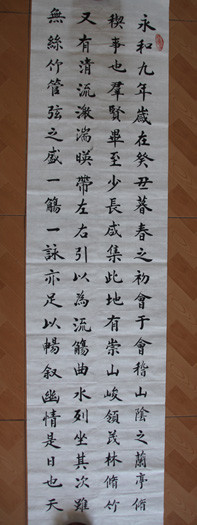 永和九年歲在癸丑暮春之初會于會稽山陰之蘭亭脩
稧事也羣賢畢至少長咸集此地有崇山峻領茂林脩竹
又有清流激湍暎帶左右引以為流觴曲水列坐其次雖
無絲竹管弦之盛一觴一詠亦足以暢叙幽情是日也天